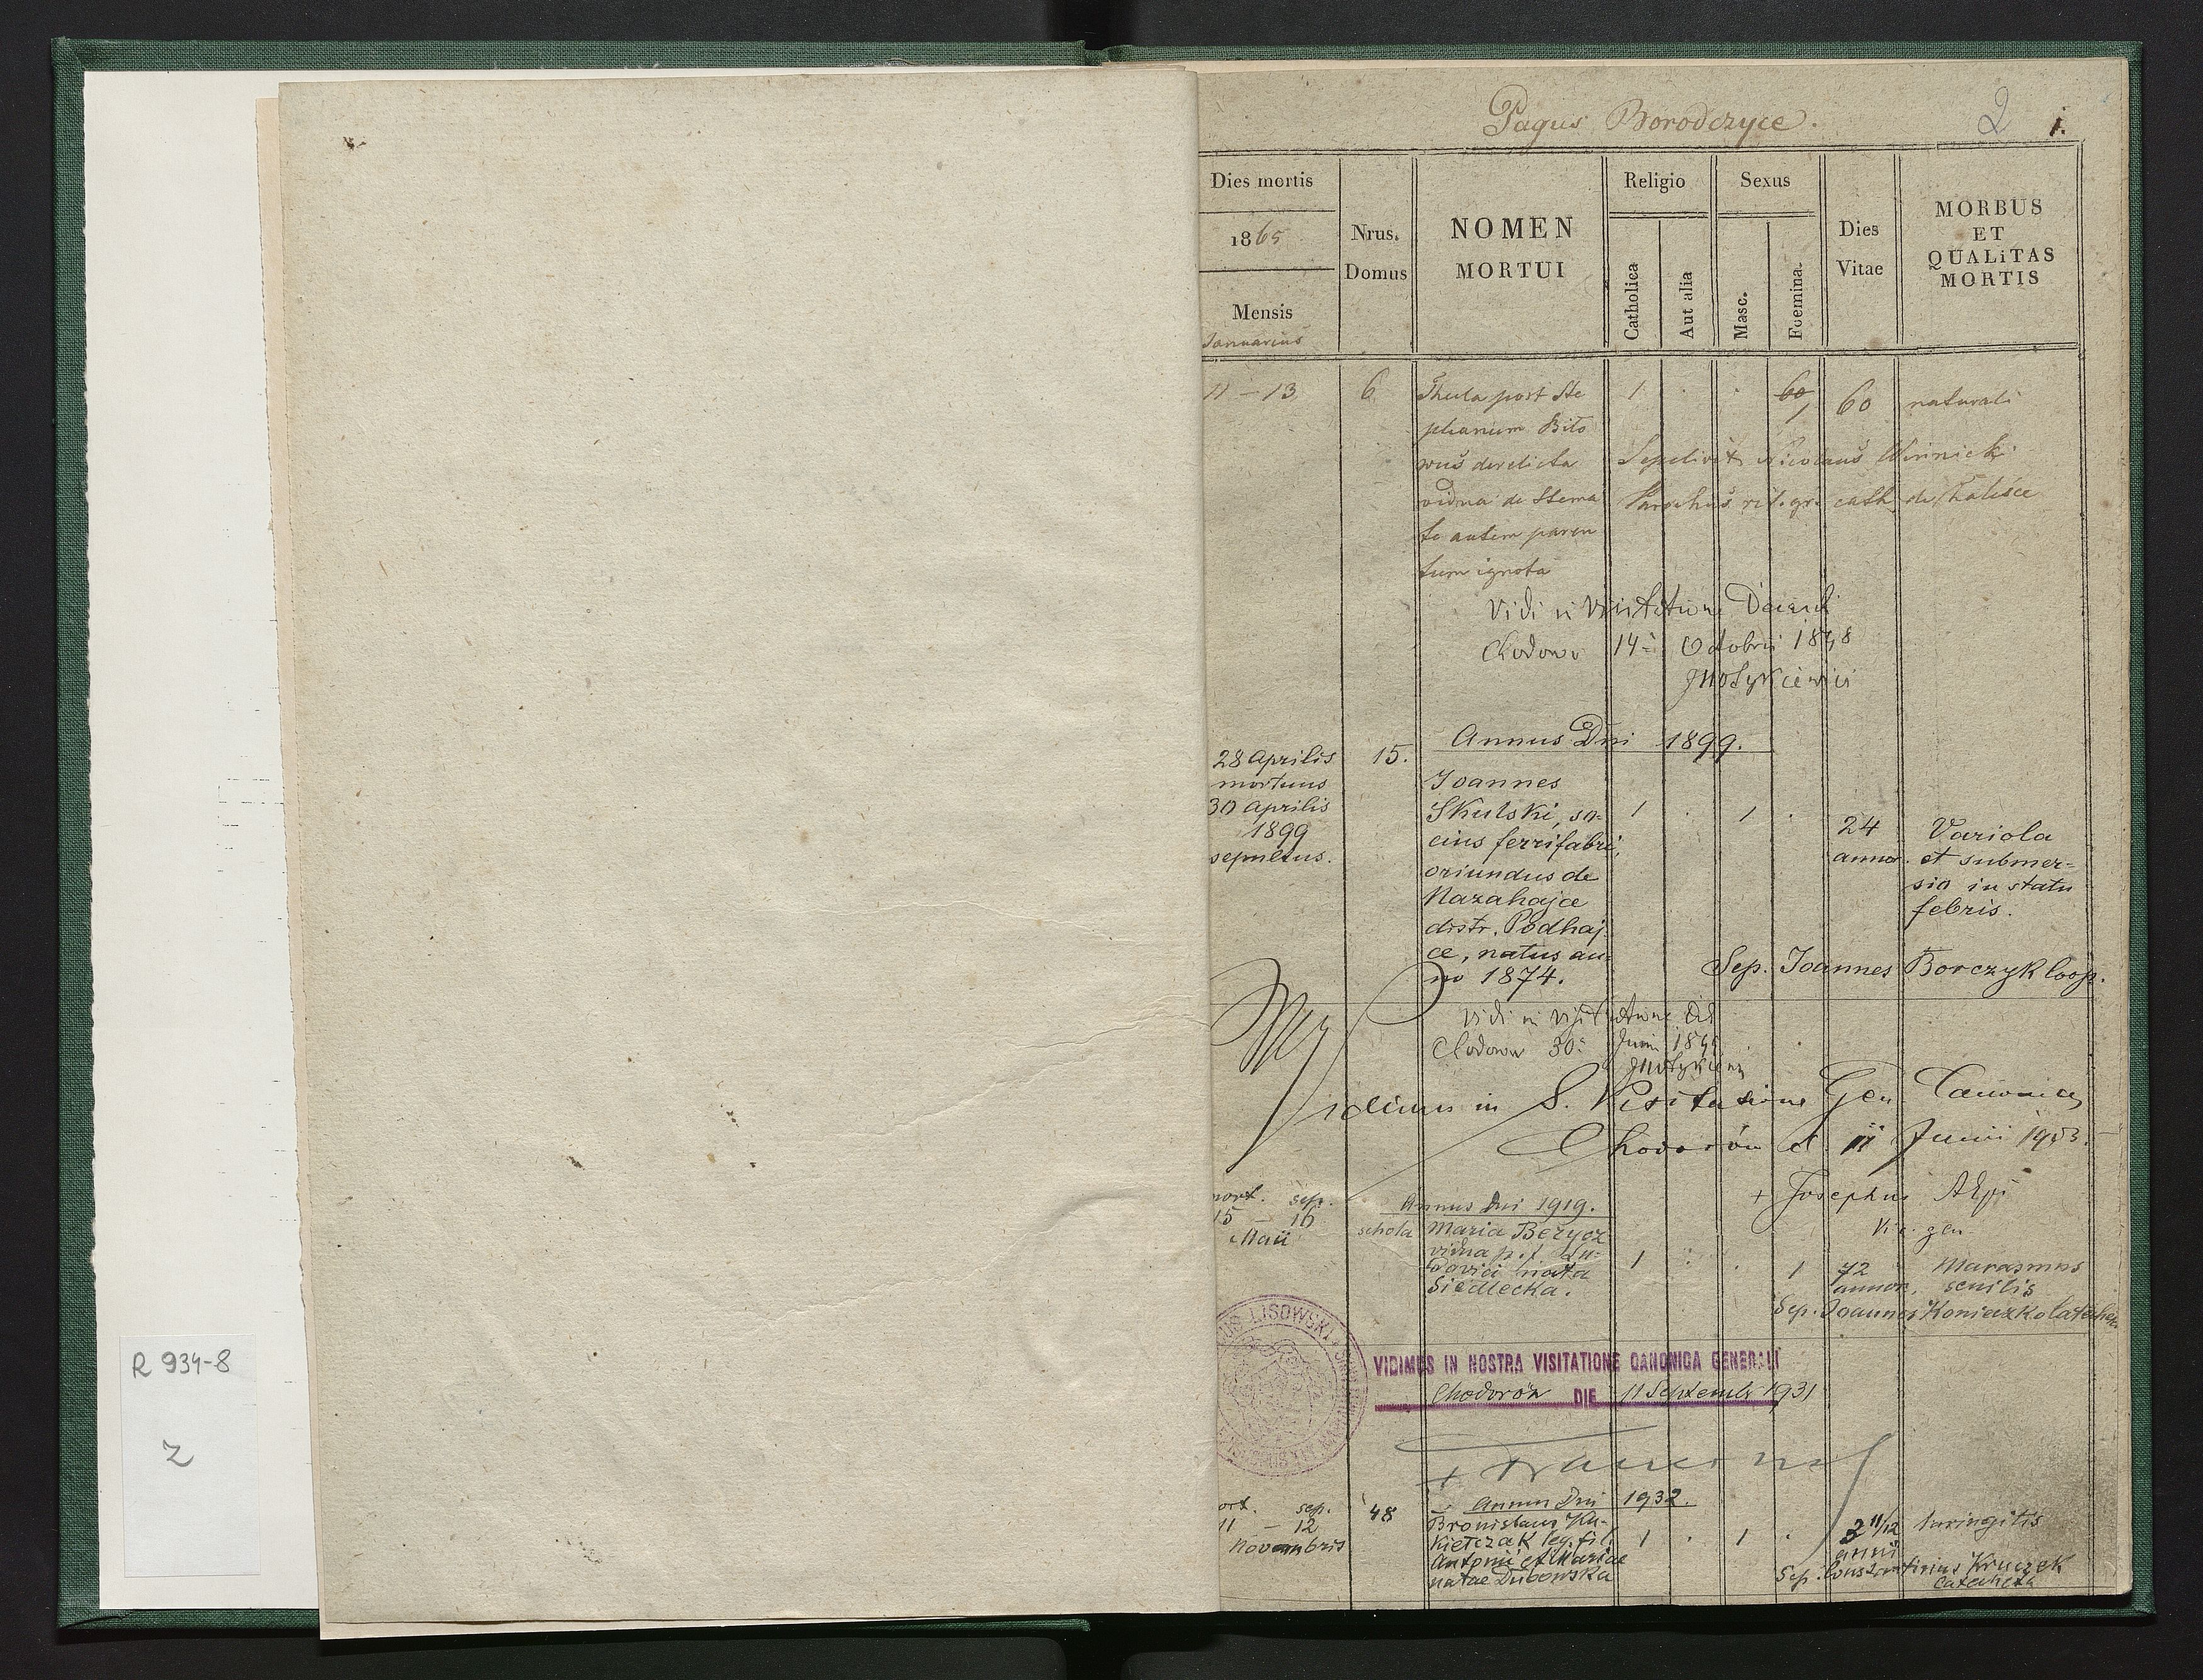 R 934-8
Z
Pagus Borodczyce.
2 1.
Dies mortis
1865
Mensis
Januarius
Nrus. Domus
NOMEN MORTUI
Religio
Catholica
Aut alia
Sexus
Masc.
Foemina.
Dies Vitae
MORBUS ET QUALiTAS MORTIS
11 – 13 6 Thecla post Ste 1 . . 60 1 60 naturali
phanum Bito
wus derelicta Sepelivit Nicolaus Winnicki
vidua de Stema Parochus rit. gr. cath. de
te autem paren
tum ignota
Vidi in Visitatione Decanli
14 Octobris 1898
Annus Dni 1899.
28 Aprilis 15.
mortuus Joannes
30 Aprilis Skulski, so- 1 . 1 .
1899 cius ferrifabri, 24 Variola
sepultus. oriundus de annor. et submer=
Nazahajce sio in statu
distr. Podhaj febris.
ce, natus an-
no 1874. Sep. Joannes Borczyk coop.
Vidi in visitatione
30 Junii
Vidimus in S. Visitatione Gen. Canonica
Chodorów d. 11 Junii
+ Josephus
Vic. gen.
mort. sep. Annus Dni 1919.
15 – 16 schola Maria
Maii vidua p. f. Lu=
dovici nata 1 . . 1 72 Marasmus
Siedlecka. annor. senilis
Sep. Joannes
US LISOWSKI
VIDIMUS IN NOSTRA VISITATIONE CANONICA GENERALI
Chodorów DIE 11 Septembr 1931
+ Franciszek
Annus Dni 1932.
mort. sep. 48 Bronislaus Ku-
11 – 12 kiełczak leg. fil. 1 . 1 . 2 11/12 laringitis
Novembris Antonii et Mariae anni
natae Dubowska Sep. Constantinus Kruczek
catecheta